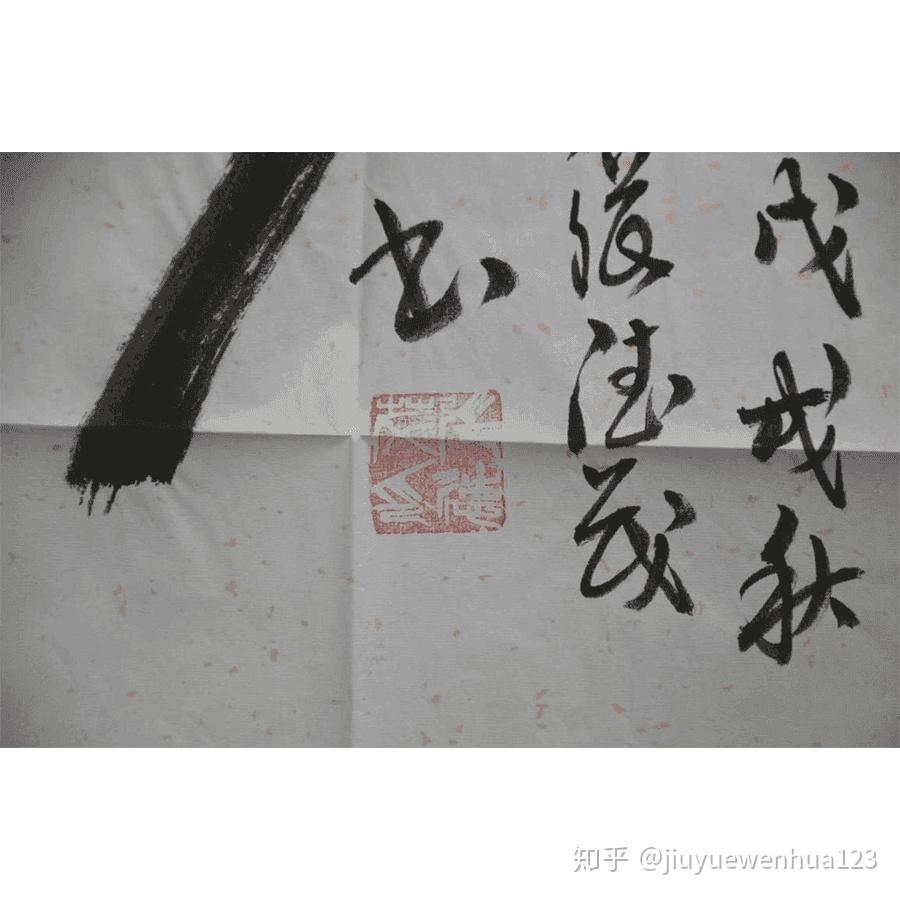 戊戌秋
德茂
书
知乎 @jiuyuewenhua123